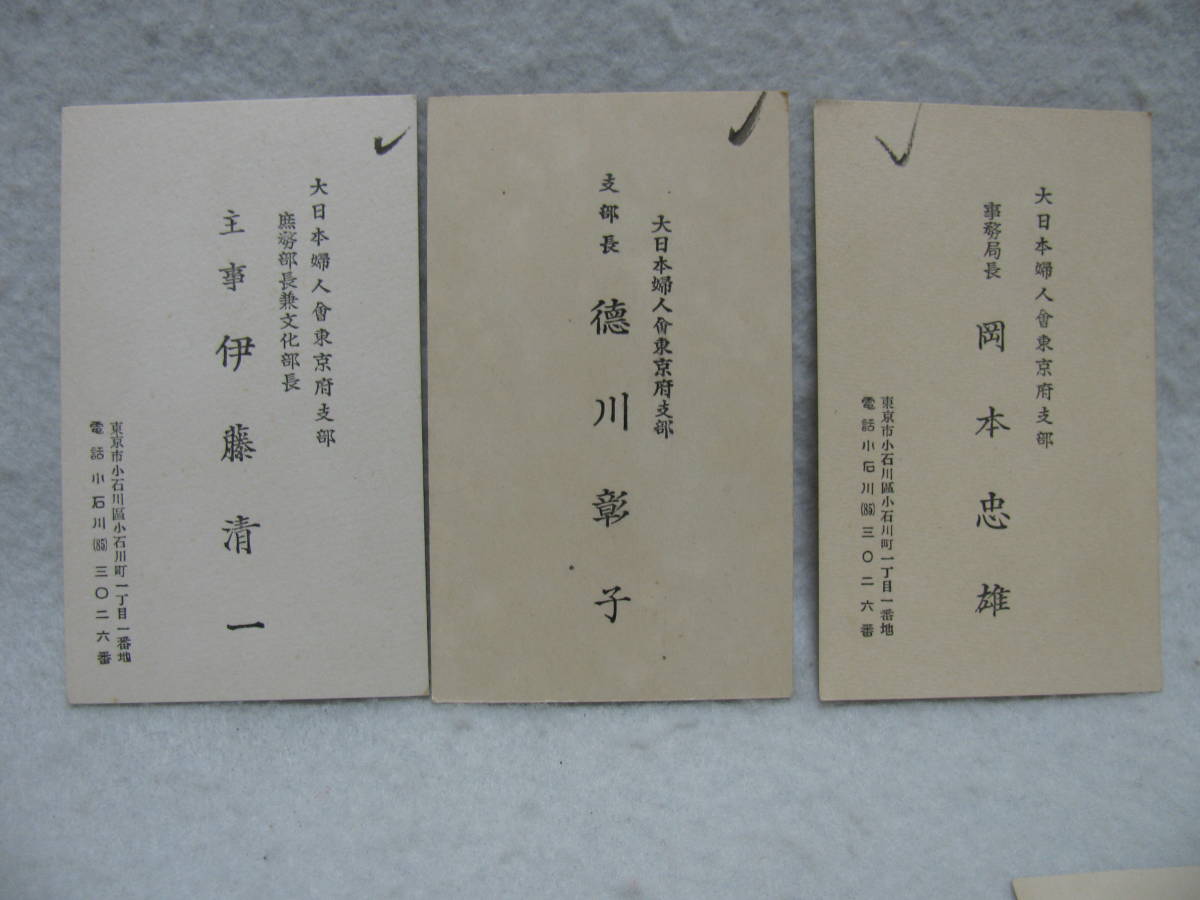 大日本婦人會東京府支部
事務局長
岡本忠雄
東京市小石川區小石川町一丁目一番地
電話小石川(85)三〇二六番
大日本婦人會東京府支部
支部長 德川彰子
大日本婦人會東京府支部
庶務部長兼文化部長
主事 伊藤清一
東京市小石川區小石川町一丁目一番地
電話小石川(85)三〇二六番